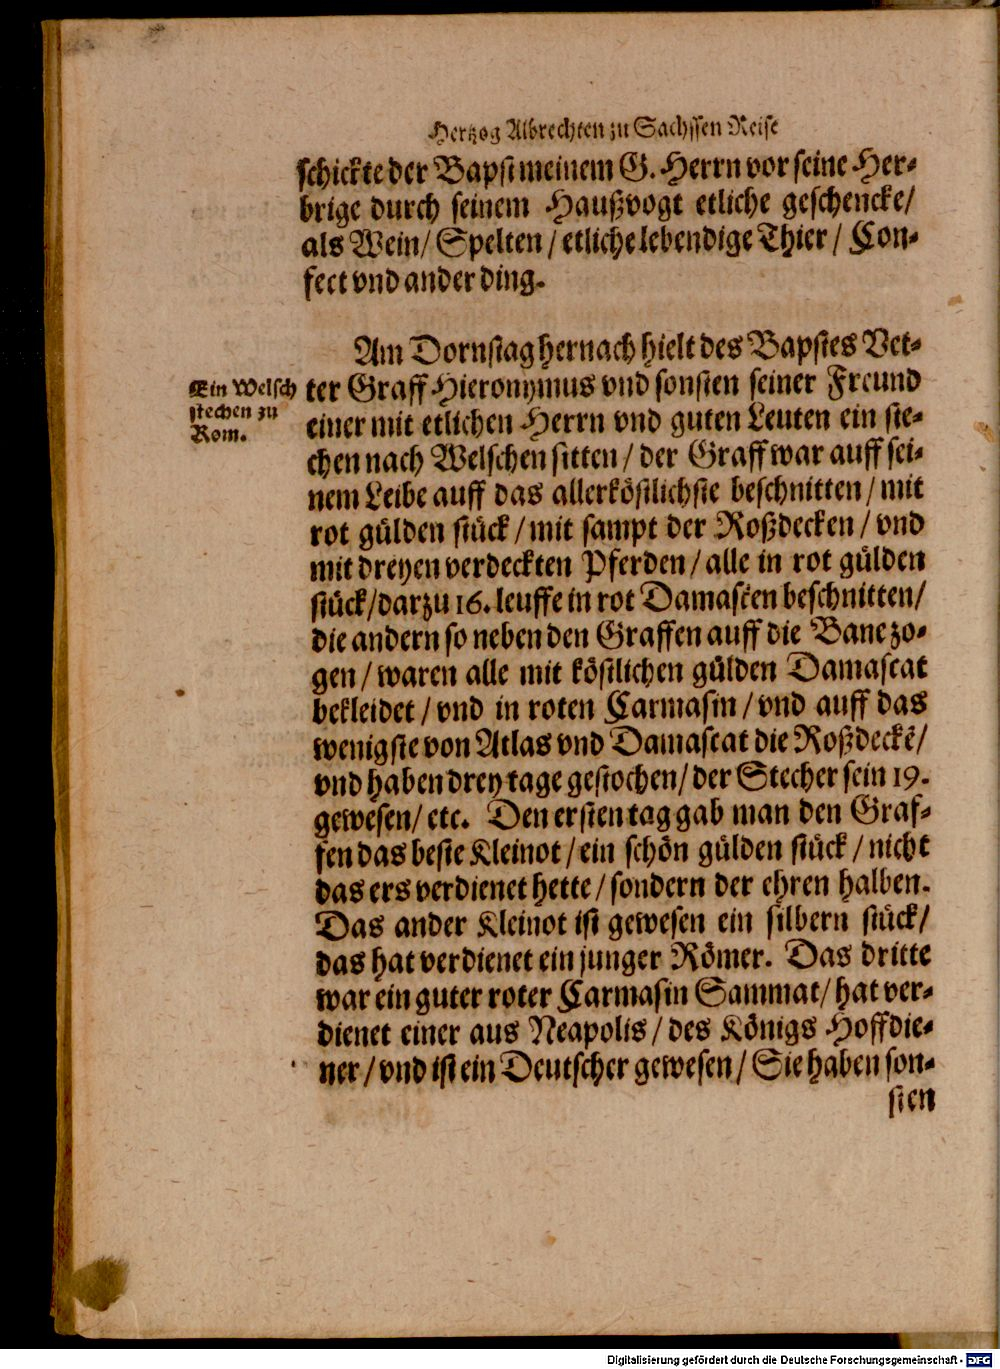 Hertzog Albrechten zu Sachssen Reise
schickte der Bapst meinem G. Herrn vor seine Her-
brige durch seinem Haußvogt etliche geschencke/
als Wein/ Spelten / etliche lebendige Thier / Con-
fect vnd ander ding.
Am Dornstag hernach hielt des Bapstes Vet-
Ein Welsch
stechen zu
Rom.
ter Graff Hieronymus vnd sonsten seiner Freund
einer mit etlichen Herrn vnd guten Leuten ein ste-
chen nach Welschen sitten / der Graff war auff sei-
nem Leibe auff das allerköstlichste beschnitten / mit
rot gülden stück / mit sampt der Roßdecken / vnd
mit dreyen verdeckten Pferden / alle in rot gülden
stück/darzu 16. leuffe in rot Damascen beschnitten/
die andern so neben den Graffen auff die Bane zo-
gen / waren alle mit köstlichen gülden Damascat
bekleidet / vnd in roten Carmasin / vnd auff das
wenigste von Atlas vnd Damascat die Roßdeckē/
vnd haben drey tage gestochen/ der Stecher sein 19.
gewesen/ etc. Den ersten tag gab man den Graf-
fen das beste Kleinot / ein schön gülden stück / nicht
das ers verdienet hette / sondern der ehren halben.
Das ander Kleinot ist gewesen ein silbern stück/
das hat verdienet ein junger Römer. Das dritte
war ein guter roter Carmasin Sammat/ hat ver-
dienet einer aus Neapolis / des Königs Hoffdie-
ner / vnd ist ein Deutscher gewesen / Sie haben son-
sten
Digitalisierung gefördert durch die Deutsche Forschungsgemeinschaft - DFG